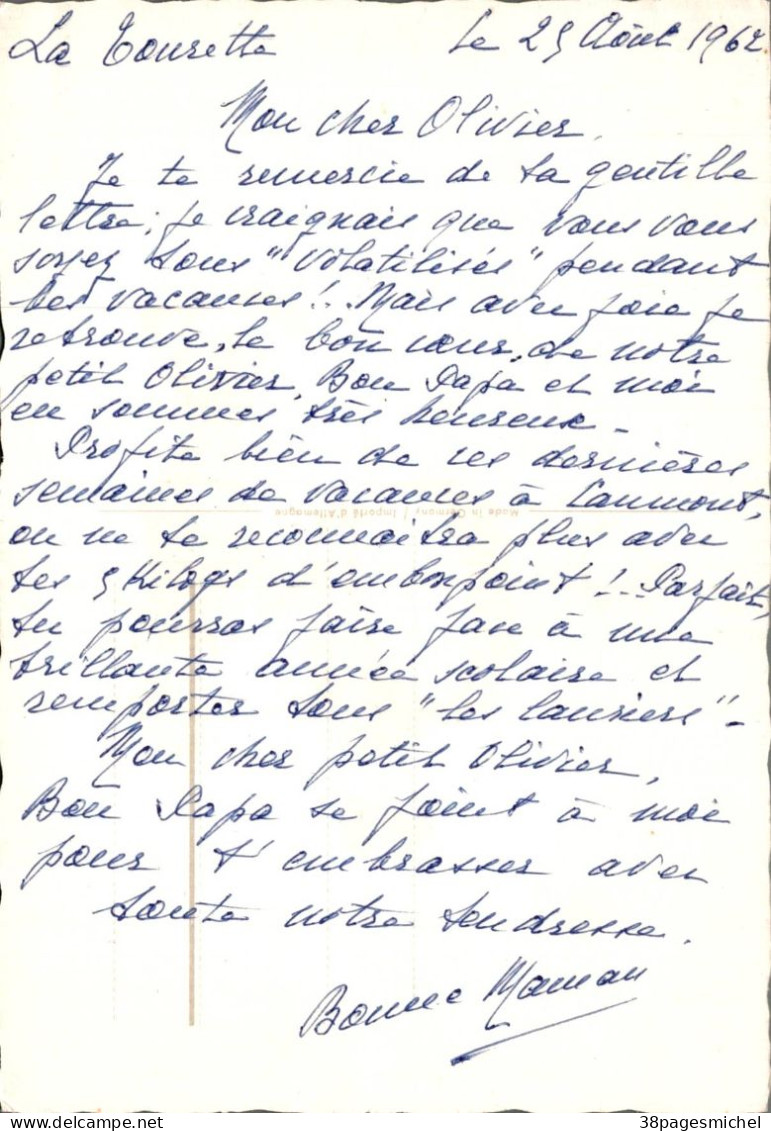 La Tourette le 25 Août 1962
Mon cher Olivier,
Je te remercie de ta gentille
lettre ; je craignais que vous vous
soyez tous "volatilisés" pendant
les vacances !.. Mais avec joie je
retrouve, le bon cœur, de notre
petit Olivier. Bon Papa et moi
en sommes très heureux _
Profite bien de ces dernières
semaines de vacances à Caumont,
Made in Germany / Importé d'Allemagne
on ne te reconnaitra plus avec
tes 5 kilogs d'embonpoint !.. Parfait,
tu pourras faire face à une
brillante année scolaire et
remporter tous "les lauriers" _
Mon cher petit Olivier,
Bon Papa se joint à moi
pour t'embrasser avec
toute notre tendresse.
Bonne Maman
38pagesmichel